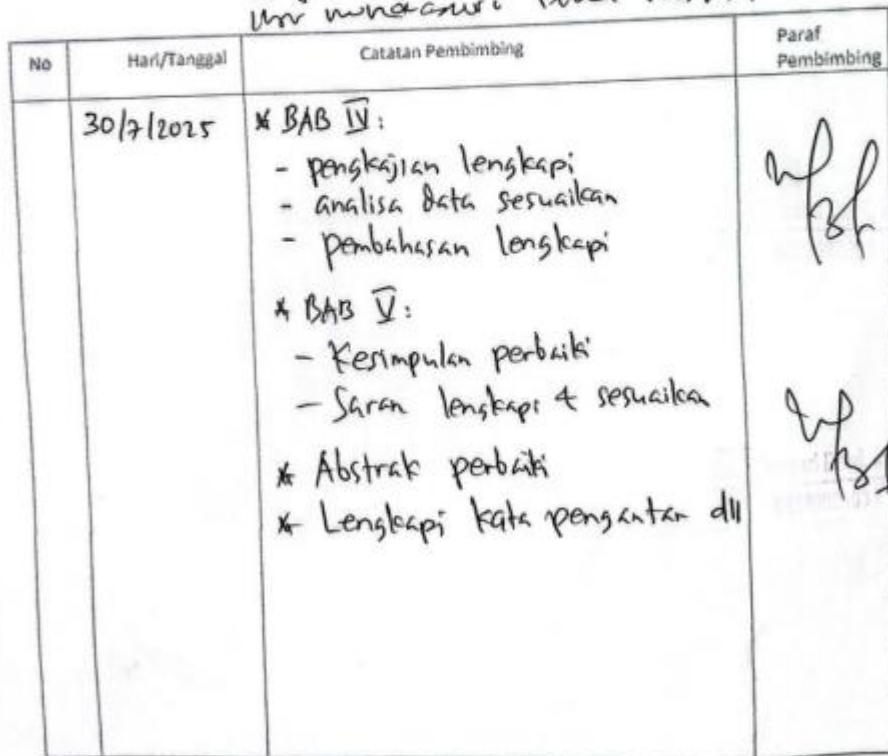 No
Hari/Tanggal
Catatan Pembimbing
Paraf
Pembimbing
30/7/2025
* BAB IV:
- pengkajian lengkapi
- analisa data sesuaikan
- pembahasan lengkapi
* BAB V:
- Kesimpulan perbaiki
- Saran lengkapi & sesuaikan
* Abstrak perbaiki
* Lengkapi kata pengantar dll